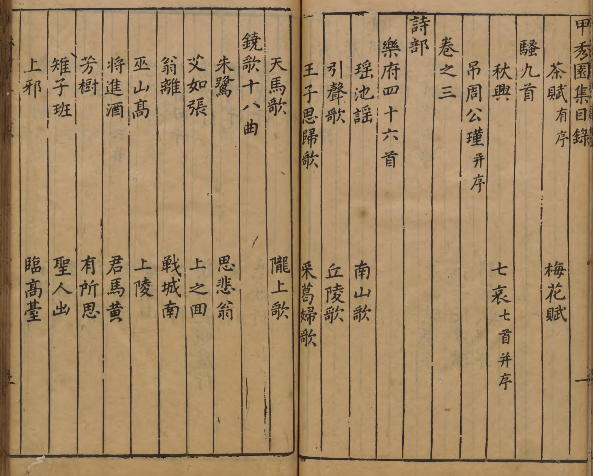 甲秀園集目錄
茶賦有序 梅花賦
騷九首
秋興 七哀七首并序
弔周公瑾并序
卷之三
詩部
樂府四十六首
瑤池謠 南山歌
引聲歌 丘陵歌
王子思歸歌 采葛婦歌
天馬歌 隴上歌
鐃歌十八曲
朱鷺 思悲翁
艾如張 上之回
翁離 戰城南
巫山高 上陵
將進酒 君馬黃
芳樹 有所思
雉子班 聖人出
上邪 臨高臺